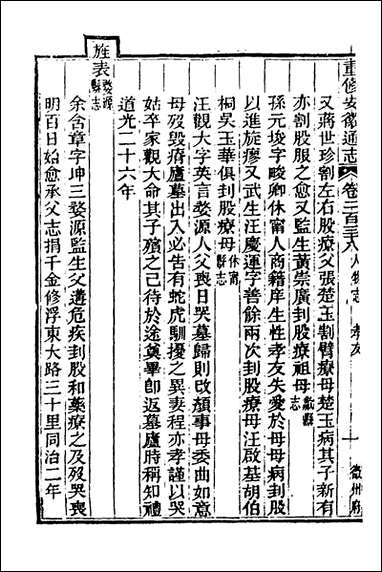 重修安徽通志 卷二百三十八 人物志 孝友 十 徽州府
又蔣世珍割左右股療父張楚玉割臂療母楚玉病其子新有
亦割股服之愈又監生黃崇廣刲股療祖母歙縣志
孫元埈字畯卿休甯人商籍庠生性孝友失愛於母母病刲股
以進旋瘳又武生汪慶運字善餘兩次刲股療母汪啟基胡伯
桐吳玉華俱刲股療母休甯縣志
汪觀大字英言婺源人父喪日哭墓歸則改頰事母委曲如意
母歿毀瘠廬墓出入必告有蛇虎馴擾之異妻程亦孝謹以哭
姑卒家觀大命其子殯之己待於途奠畢卽返墓廬時稱知禮
道光二十六年
旌表婺源縣志
余含章字坤三婺源監生父遘危疾刲股和藥療之及歿哭喪
明百日始愈承父志捐千金修浮東大路三十里同治二年